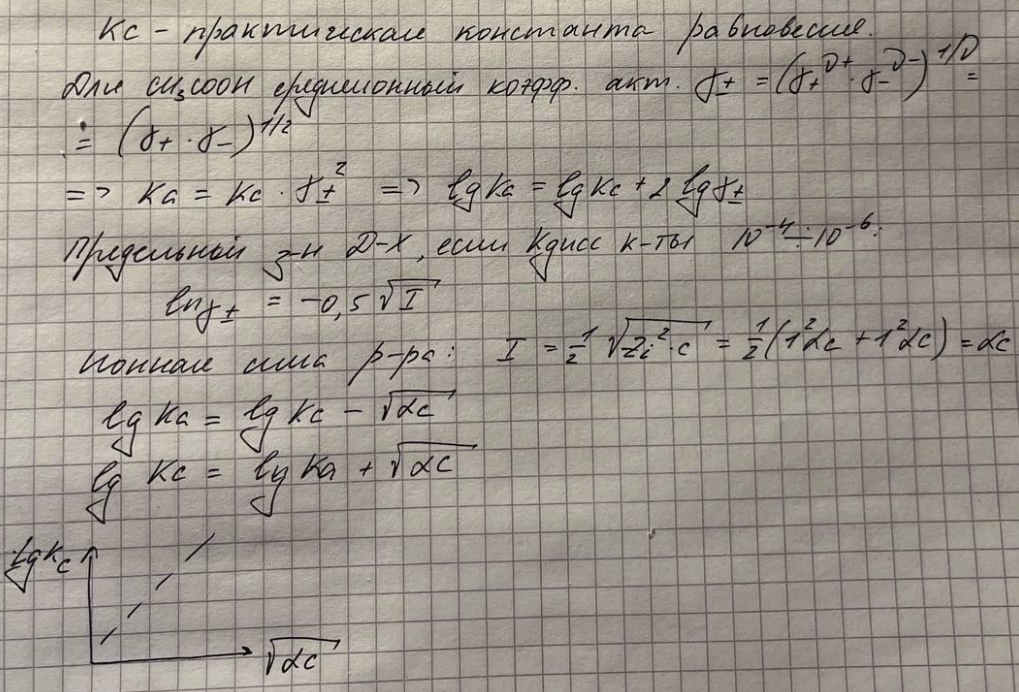 Kc - практическая константа равновесия.
Для CH₃COOH среднеионный коэфф. акт. γ± = (γ₊^ν+ · γ₋^ν-)^1/ν =
= (γ₊ · γ₋)^1/2
=> Ka = Kc · γ±² => lg Ka = lg Kc + 2 lg γ±
Предельный з-н Д-Х, если Kдисс к-ты 10⁻⁴÷10⁻⁶:
ln γ± = -0,5 √I
Ионная сила р-ра: I = 1/2 √Zi²·c = 1/2 (1²αc + 1²αc) = αc
lg Ka = lg Kc - √αc
lg Kc = lg Ka + √αc
lg Kc
√αc